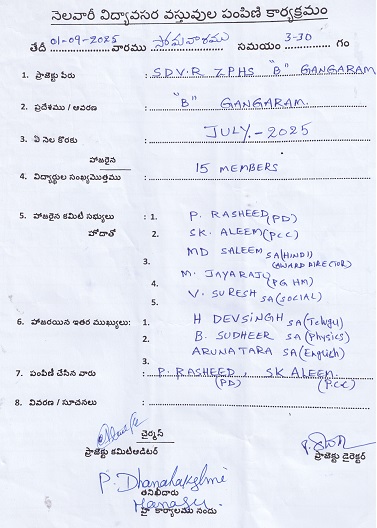 నెలవారీ విద్యావసర వస్తువుల పంపిణి కార్యక్రమం
తేది 01-09-2025 వారము సోమవారము సమయం 3-30 గం
1. ప్రాజెక్టు పేరు : SDVR ZPHS "B" GANGARAM
2. ప్రదేశము / ఆవరణ : "B" GANGARAM.
3. ఏ నెల కొరకు : JULY - 2025
హాజరైన
4. విద్యార్థుల సంఖ్యమొత్తము : 15 MEMBERS
5. హాజరైన కమిటి సభ్యులు : 1. P. RASHEED (PD)
హోదాతో 2. SK. ALEEM (PCC)
3. MD SALEEM SA (HINDI)
(AWARD DIRECTOR)
4. M. JAYARAJU (PG HM)
5. V. SURESH SA (SOCIAL)
6. హాజరయిన ఇతర ముఖ్యులు: 1. H DEVSINGH SA (Telugu)
2. B. SUDHEER SA (Physics)
3. ARUNATARA SA (English)
7. పంపిణి చేసిన వారు : P. RASHEED, SK ALEEM
(PD) (PCC)
8. వివరణ / సూచనలు :
చైర్మన్
ప్రాజెక్టు కమిటిఆడిటర్ ప్రాజెక్టు డైరెక్టర్
P. Dhanalakshmi
తనిఖీదారు
Manasu
హై కార్యాలము నందు